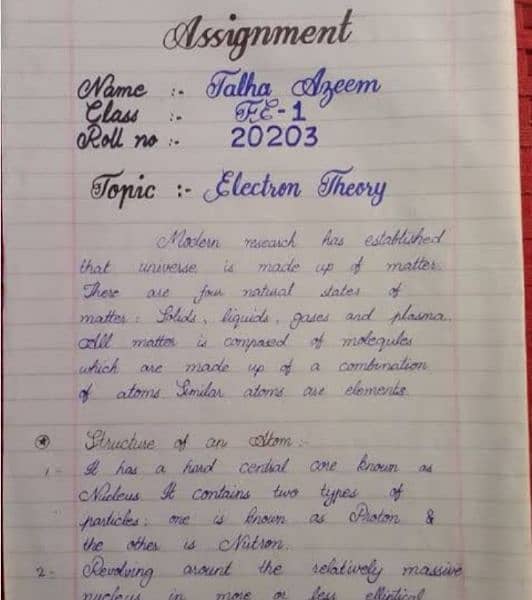 Assignment
Name :- Talha Azeem
Class :- FE-1
Roll no :- 20203
Topic :- Electron Theory
Modern research has established
that universe is made up of matter.
There are four natural states of
matter: Solids, liquids, gases and plasma.
All matter is composed of molequles
which are made up of a combination
of atoms. Similar atoms are elements.
Structure of an Atom :-
1- It has a hard central core known as
Nucleus. It contains two types of
particles: one is known as Proton &
the other is Nutron.
2- Revolving around the relatively massive
nucleus in more or less elliptical